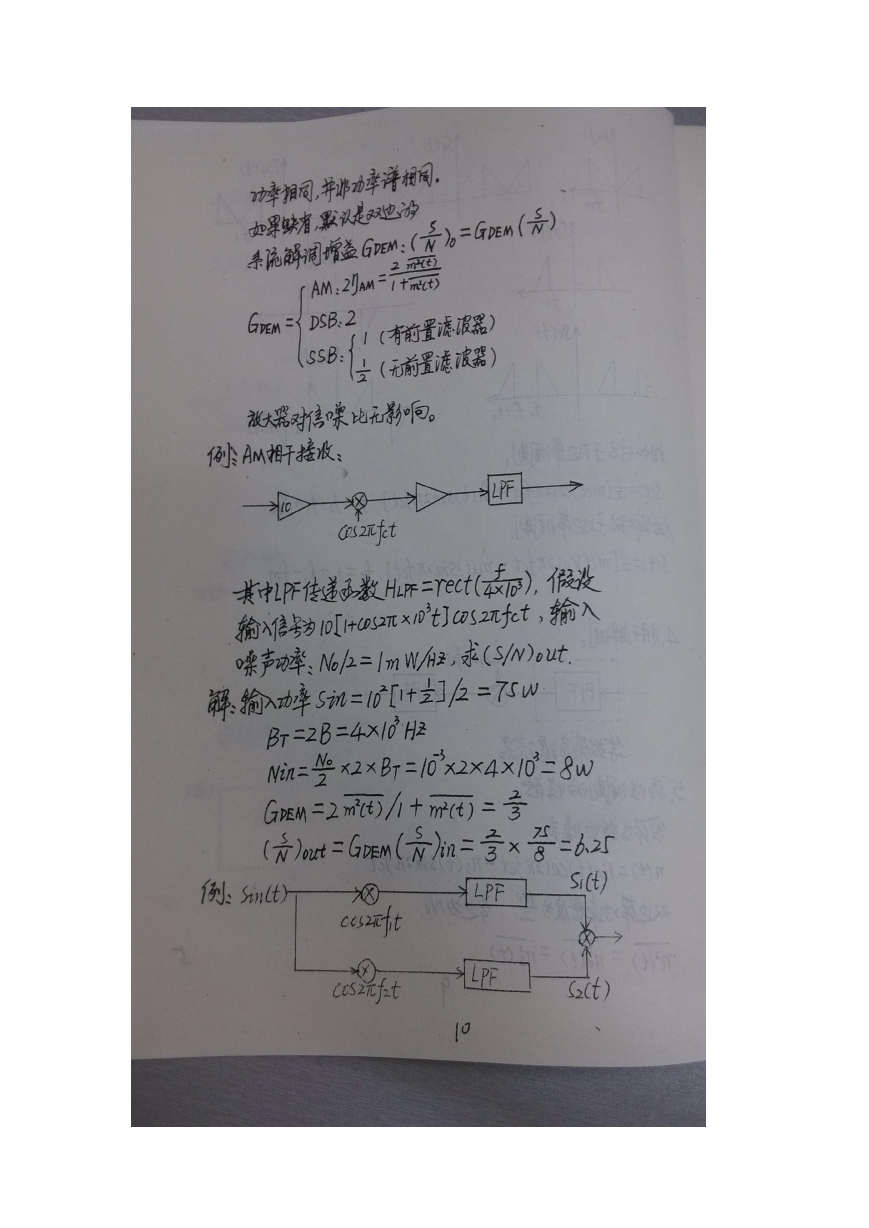 功率相同,并非功率谱相同。
如果缺省,默认是双边的
系统解调增益 GDEM: (S/N)o = GDEM (S/N)
GDEM = { AM: 2ηAM = 2 m²(t) / 1+m²(t)
DSB: 2
SSB: { 1 (有前置滤波器)
1/2 (无前置滤波器)
放大器对信噪比无影响。
例: AM相干接收:
10 LPF
cos2πfct
其中LPF传递函数 HLPF = rect(f/4×10³), 假设
输入信号为10[1+cos2π×10³t]cos2πfct, 输入
噪声功率: No/2 = 1mW/HZ, 求(S/N)out.
解: 输入功率 Sin = 10²[1+1/2]/2 = 75W
BT = 2B = 4×10³HZ
Nin = No/2 ×2×BT = 10⁻³×2×4×10³ = 8W
GDEM = 2 m²(t) / 1 + m²(t) = 2/3
(S/N)out = GDEM (S/N)in = 2/3 × 75/8 = 6.25
例: Sin(t) LPF S1(t)
cos2πf1t
LPF
cos2πf2t S2(t)
10